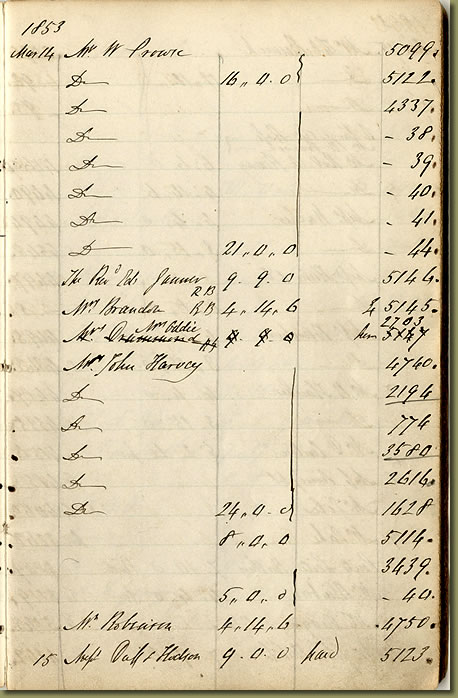 1853
Mar 14 Mr W Prowse 5099.
Do 16 ,, 0 . 0 5122.
Do 4337.
Do - 38.
Do - 39.
Do - 40.
Do - 41.
Do 21 ,, 0 ,, 0 - 44.
The Revd Jenner 9 . 9 . 0 5146.
RB
Mrs Brandon RB 4 ,, 14 ,, 6 5145.
Mrs Oddie 2703
Mrs
Mr John Harvey 4740.
Do 2194
Do 774
Do 3580
Do 2616.
Do 24 ,, 0 ,, 0 1628
8 ,, 0 ,, 0 5114.
3439.
5 ,, 0 ,, 0 - 40.
Mr Robinson 4 ,, 14 ,, 6 4750.
15 Messrs Duff & Hodson 9 . 0 . 0 paid 5123.